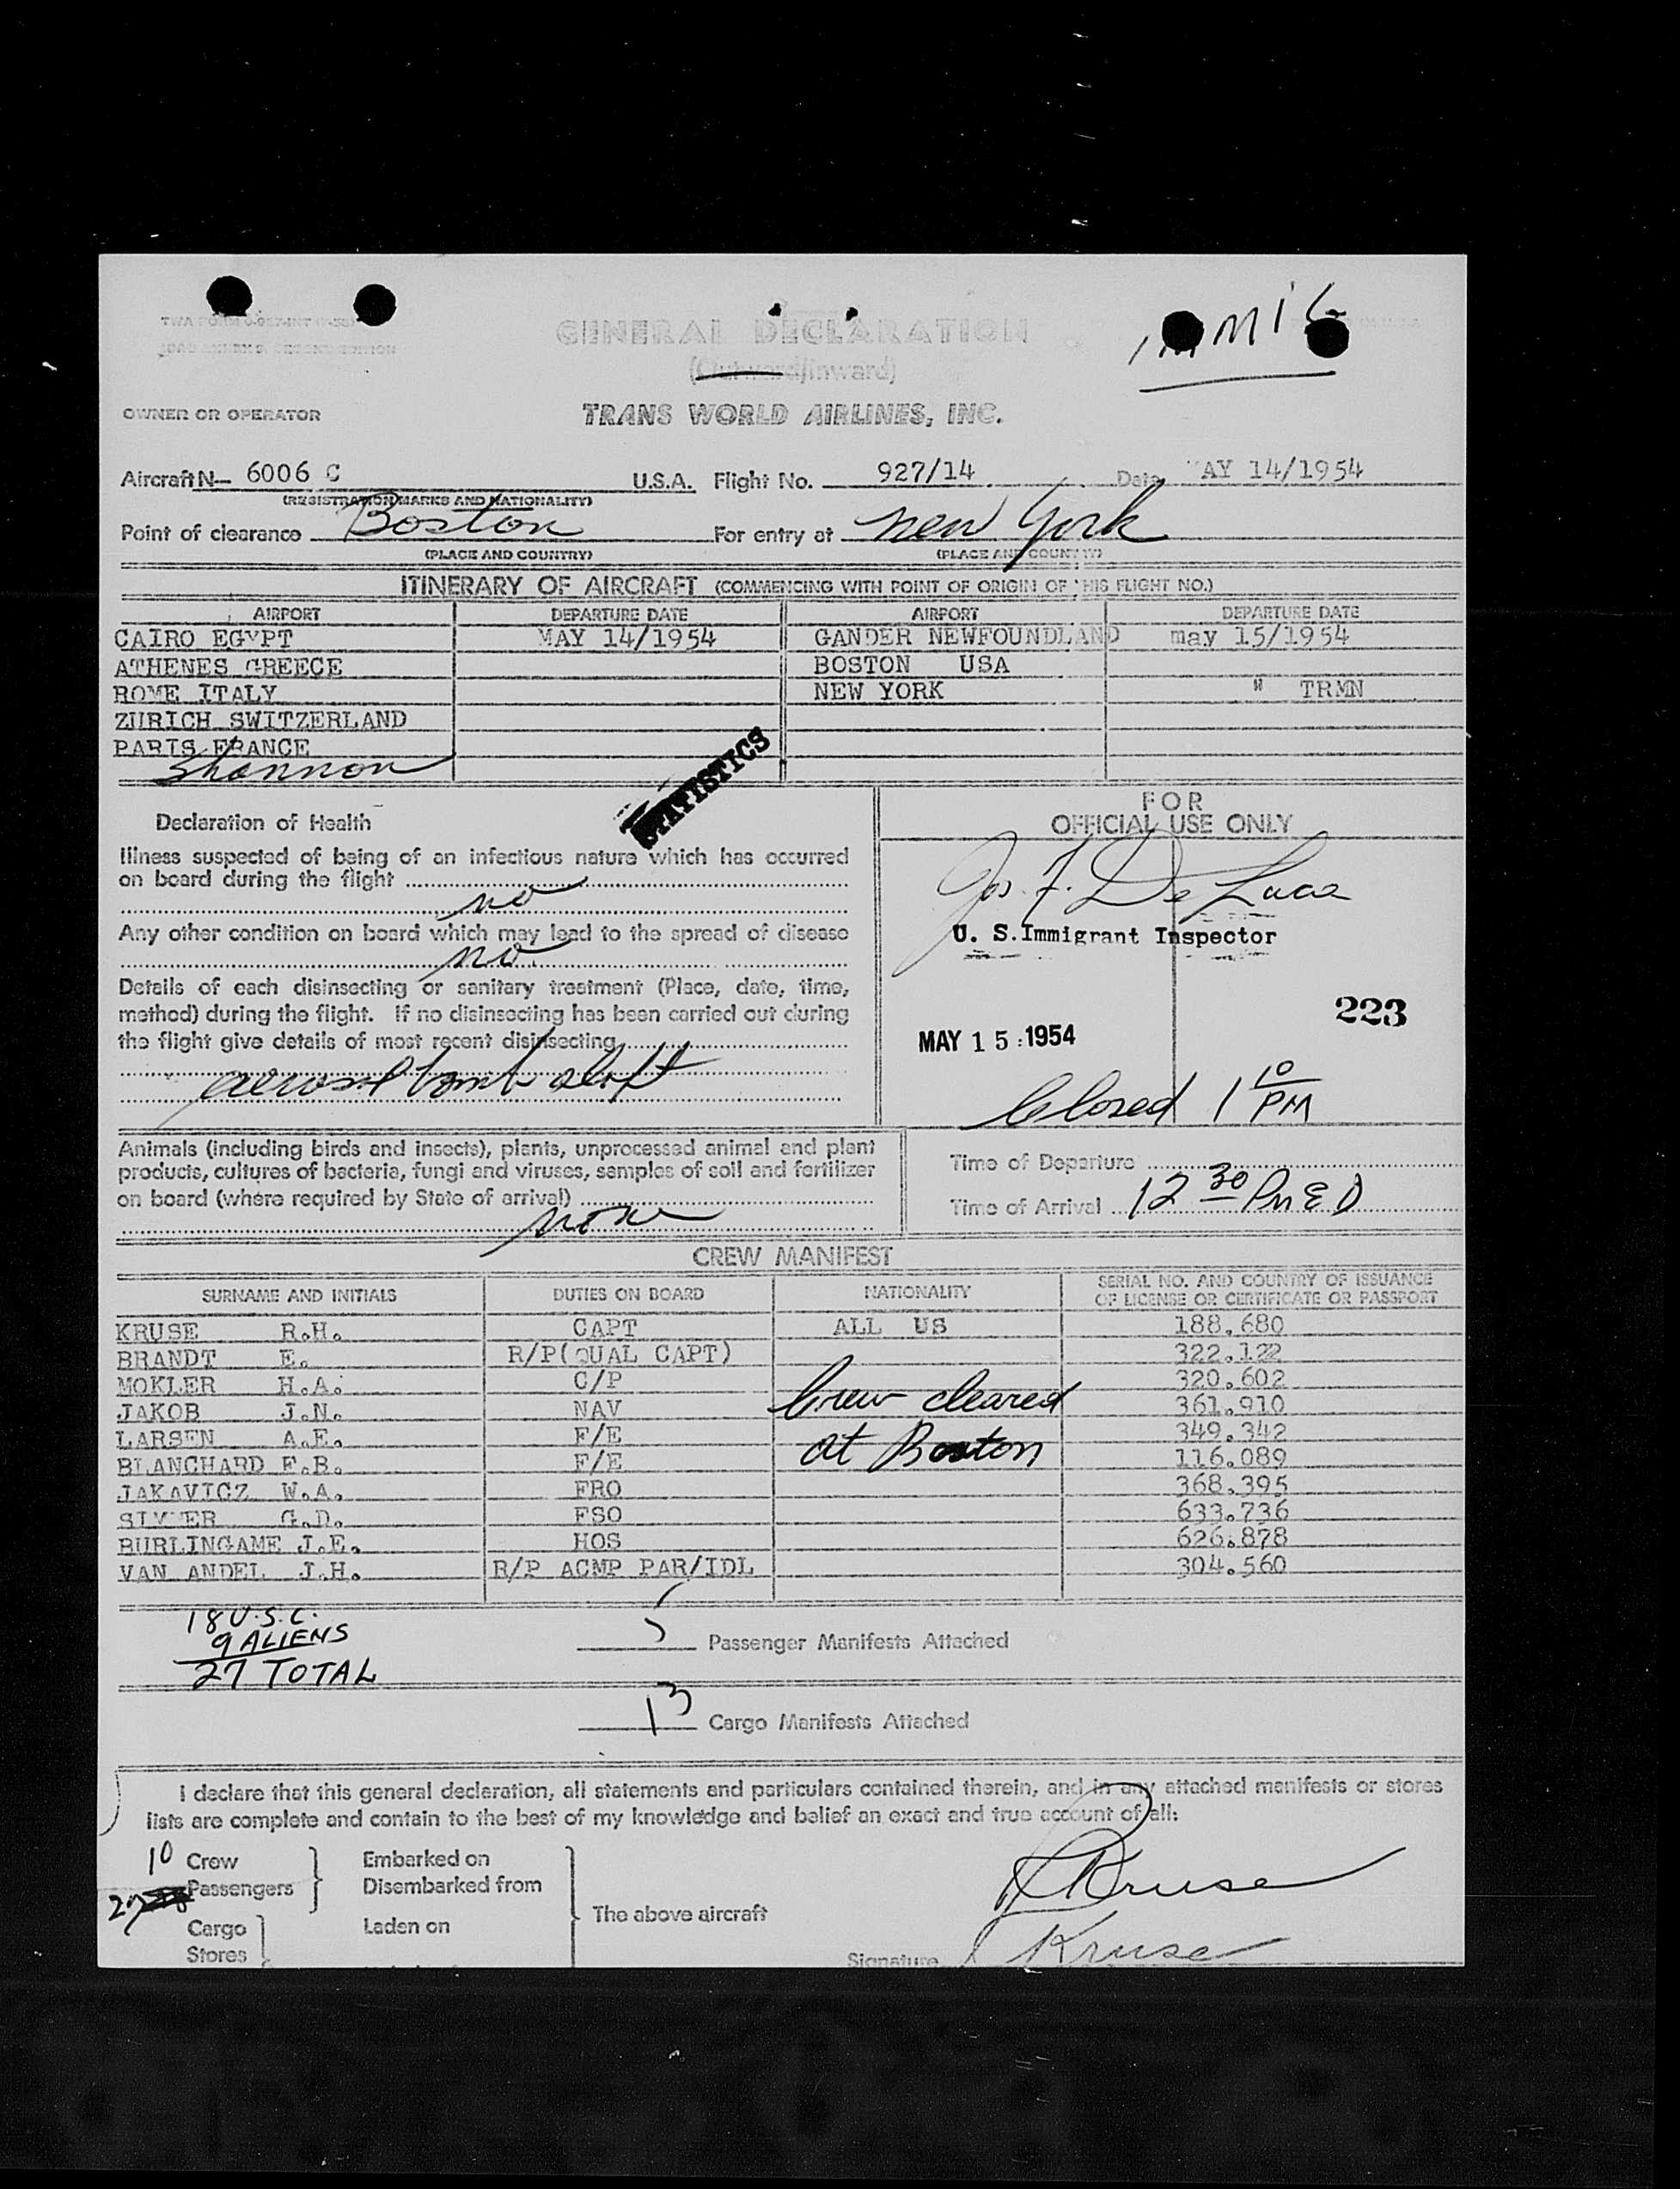 IMMIG
GENERAL DECLARATION
(Outward/Inward)
OWNER OR OPERATOR TRANS WORLD AIRLINES, INC.
Aircraft N- 6006 C U.S.A. Flight No. 927/14 Date MAY 14/1954
(REGISTRATION MARKS AND NATIONALITY)
Point of clearance Boston For entry at New York
(PLACE AND COUNTRY) (PLACE AND COUNTRY)
ITINERARY OF AIRCRAFT (COMMENCING WITH POINT OF ORIGIN OF THIS FLIGHT NO.)
AIRPORT DEPARTURE DATE AIRPORT DEPARTURE DATE
CAIRO EGYPT MAY 14/1954 GANDER NEWFOUNDLAND may 15/1954
ATHENES GREECE BOSTON USA
ROME ITALY NEW YORK " TRMN
ZURICH SWITZERLAND
PARIS FRANCE
Shannon
STATISTICS
Declaration of Health
Illness suspected of being of an infectious nature which has occurred
on board during the flight
no
Any other condition on board which may lead to the spread of disease
no.
Details of each disinsecting or sanitary treatment (Place, date, time,
method) during the flight. If no disinsecting has been carried out during
the flight give details of most recent disinsecting
aerosol bomb aloft
FOR
OFFICIAL USE ONLY
Jos. F. De Luca
U. S. Immigrant Inspector
223
MAY 15 1954
Closed 1 10 PM
Animals (including birds and insects), plants, unprocessed animal and plant
products, cultures of bacteria, fungi and viruses, samples of soil and fertilizer
on board (where required by State of arrival)
none
Time of Departure
Time of Arrival 12 30 PM E D
CREW MANIFEST
SURNAME AND INITIALS DUTIES ON BOARD NATIONALITY SERIAL NO. AND COUNTRY OF ISSUANCE
OF LICENSE OR CERTIFICATE OR PASSPORT
KRUSE R.H. CAPT ALL US 188.680
BRANDT E. R/P(QUAL CAPT) 322.122
MOKLER H.A. C/P 320.602
JAKOB J.N. NAV Crew cleared 361.910
LARSEN A.E. F/E 349.342
BLANCHARD F.B. F/E at Boston 116.089
JAKAVICZ W.A. FRO 368.395
G.D. FSO 633.736
BURLINGAME J.E. HOS 626.878
VAN ANDEL J.H. R/P ACMP PAR/IDL 304.560
18 U.S.C.
9 ALIENS
27 TOTAL
5 Passenger Manifests Attached
13 Cargo Manifests Attached
I declare that this general declaration, all statements and particulars contained therein, and in any attached manifests or stores
lists are complete and contain to the best of my knowledge and belief an exact and true account of all:
10 Crew Embarked on
27 Passengers Disembarked from
The above aircraft
Cargo Laden on
Stores
Kruse
Signature Kruse